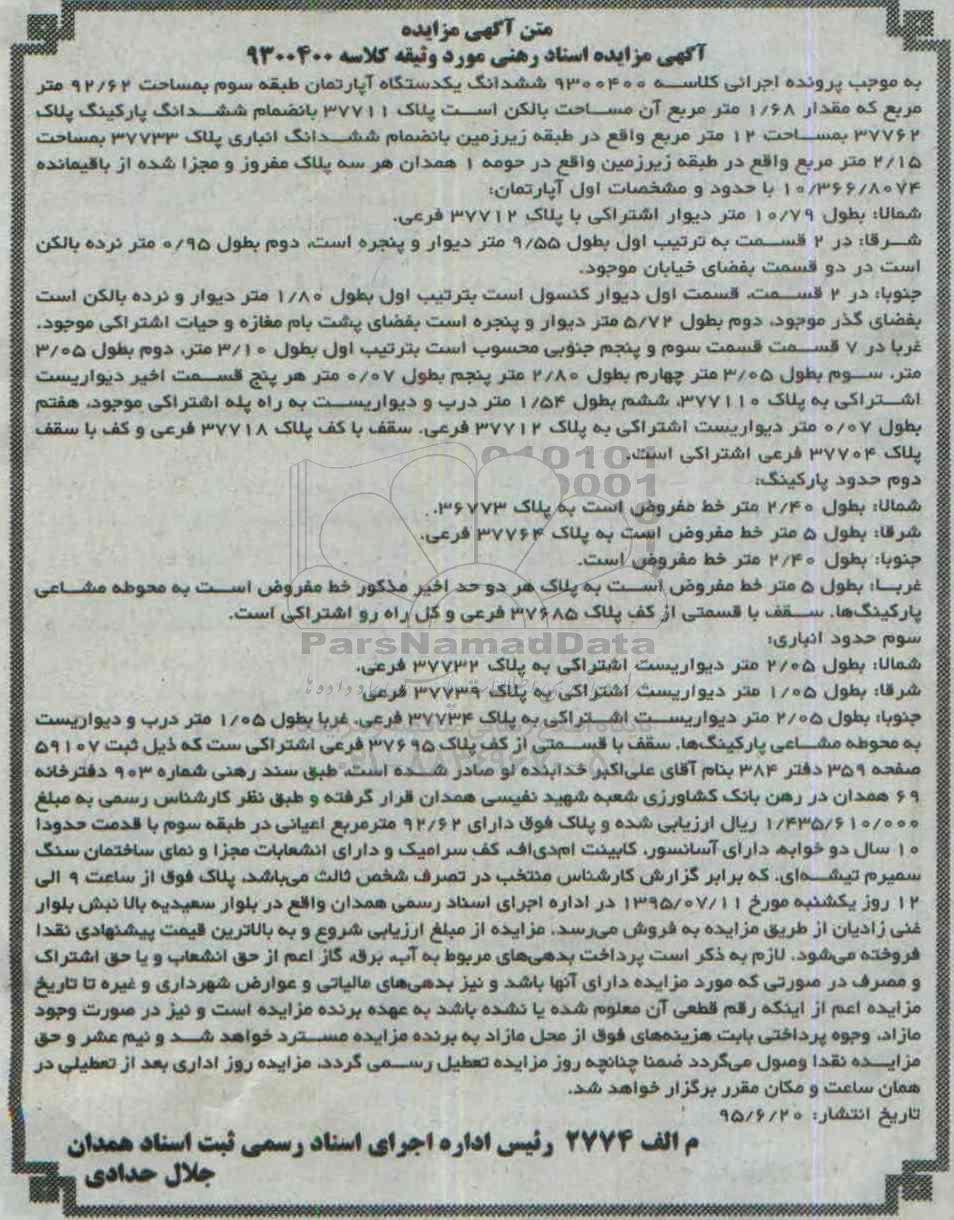 متن آگهی مزایده
آگهی مزایده اسناد رهنی مورد وثیقه کلاسه ۹۳۰۰۴۰۰
به موجب پرونده اجرائی کلاسه ۹۳۰۰۴۰۰ ششدانگ یکدستگاه آپارتمان طبقه سوم بمساحت ۹۲/۶۲ متر
مربع که مقدار ۱/۶۸ متر مربع آن مساحت بالکن است پلاک ۳۷۷۱۱ بانضمام ششدانگ پارکینگ پلاک
۳۷۷۶۲ بمساحت ۱۲ متر مربع واقع در طبقه زیرزمین بانضمام ششدانگ انباری پلاک ۳۷۷۳۳ بمساحت
۲/۱۵ متر مربع واقع در طبقه زیرزمین واقع در حومه ۱ همدان هر سه پلاک مفروز و مجزا شده از باقیمانده
۱۰/۳۶۶/۸۰۷۴ با حدود و مشخصات اول آپارتمان:
شمالا: بطول ۱۰/۷۹ متر دیوار اشتراکی با پلاک ۳۷۷۱۲ فرعی.
شرقا: در ۲ قسمت به ترتیب اول بطول ۹/۵۵ متر دیوار و پنجره است، دوم بطول ۰/۹۵ متر نرده بالکن
است در دو قسمت بفضای خیابان موجود.
جنوبا: در ۲ قسمت، قسمت اول دیوار کنسول است بترتیب اول بطول ۱/۸۰ متر دیوار و نرده بالکن است
بفضای گذر موجود، دوم بطول ۵/۷۲ متر دیوار و پنجره است بفضای پشت بام مغازه و حیات اشتراکی موجود.
غربا در ۷ قسمت قسمت سوم و پنجم جنوبی محسوب است بترتیب اول بطول ۳/۱۰ متر، دوم بطول ۳/۰۵
متر، سوم بطول ۳/۰۵ متر چهارم بطول ۲/۸۰ متر پنجم بطول ۰/۰۷ متر هر پنج قسمت اخیر دیواریست
اشتراکی به پلاک ۳۷۷۱۱۰، ششم بطول ۱/۵۴ متر درب و دیواریست به راه پله اشتراکی موجود، هفتم
بطول ۰/۰۷ متر دیواریست اشتراکی به پلاک ۳۷۷۱۲ فرعی. سقف با کف پلاک ۳۷۷۱۸ فرعی و کف با سقف
پلاک ۳۷۷۰۴ فرعی اشتراکی است.
دوم حدود پارکینگ:
شمالا: بطول ۲/۴۰ متر خط مفروض است به پلاک ۳۶۷۷۳.
شرقا: بطول ۵ متر خط مفروض است به پلاک ۳۷۷۶۴ فرعی.
جنوبا: بطول ۲/۴۰ متر خط مفروض است.
غربا: بطول ۵ متر خط مفروض است به پلاک هر دو حد اخیر مذکور خط مفروض است به محوطه مشاعی
پارکینگ‌ها. سقف با قسمتی از کف پلاک ۳۷۶۸۵ فرعی و کل راه رو اشتراکی است.
ParsNamadData
سوم حدود انباری:
شمالا: بطول ۲/۰۵ متر دیواریست اشتراکی به پلاک ۳۷۷۳۲ فرعی.
شرقا: بطول ۱/۰۵ متر دیواریست اشتراکی به پلاک ۳۷۷۳۹ فرعی
جنوبا: بطول ۲/۰۵ متر دیواریست اشتراکی به پلاک ۳۷۷۳۴ فرعی. غربا بطول ۱/۰۵ متر درب و دیواریست
به محوطه مشاعی پارکینگ‌ها. سقف با قسمتی از کف پلاک ۳۷۶۹۵ فرعی اشتراکی ست که ذیل ثبت ۵۹۱۰۷
صفحه ۳۵۹ دفتر ۳۸۴ بنام آقای علی‌اکبر خدابنده لو صادر شده است، طبق سند رهنی شماره ۹۰۳ دفترخانه
۶۹ همدان در رهن بانک کشاورزی شعبه شهید نفیسی همدان قرار گرفته و طبق نظر کارشناس رسمی به مبلغ
۱/۴۳۵/۶۱۰/۰۰۰ ریال ارزیابی شده و پلاک فوق دارای ۹۲/۶۲ مترمربع اعیانی در طبقه سوم با قدمت حدودا
۱۰ سال دو خوابه، دارای آسانسور، کابینت ام‌دی‌اف، کف سرامیک و دارای انشعابات مجزا و نمای ساختمان سنگ
سمیرم تیشه‌ای، که برابر گزارش کارشناس منتخب در تصرف شخص ثالث می‌باشد، پلاک فوق از ساعت ۹ الی
۱۲ روز یکشنبه مورخ ۱۳۹۵/۰۷/۱۱ در اداره اجرای اسناد رسمی همدان واقع در بلوار سعیدیه بالا نبش بلوار
غنی زادیان از طریق مزایده به فروش می‌رسد. مزایده از مبلغ ارزیابی شروع و به بالاترین قیمت پیشنهادی نقدا
فروخته می‌شود. لازم به ذکر است پرداخت بدهی‌های مربوط به آب، برق، گاز اعم از حق انشعاب و یا حق اشتراک
و مصرف در صورتی که مورد مزایده دارای آنها باشد و نیز بدهی‌های مالیاتی و عوارض شهرداری و غیره تا تاریخ
مزایده اعم از اینکه رقم قطعی آن معلوم شده یا نشده باشد به عهده برنده مزایده است و نیز در صورت وجود
مازاد، وجوه پرداختی بابت هزینه‌های فوق از محل مازاد به برنده مزایده مسترد خواهد شد و نیم عشر و حق
مزایده نقدا وصول می‌گردد ضمنا چنانچه روز مزایده تعطیل رسمی گردد، مزایده روز اداری بعد از تعطیلی در
همان ساعت و مکان مقرر برگزار خواهد شد.
تاریخ انتشار: ۹۵/۶/۲۰
م الف ۲۷۷۴ رئیس اداره اجرای اسناد رسمی ثبت اسناد همدان
جلال حدادی